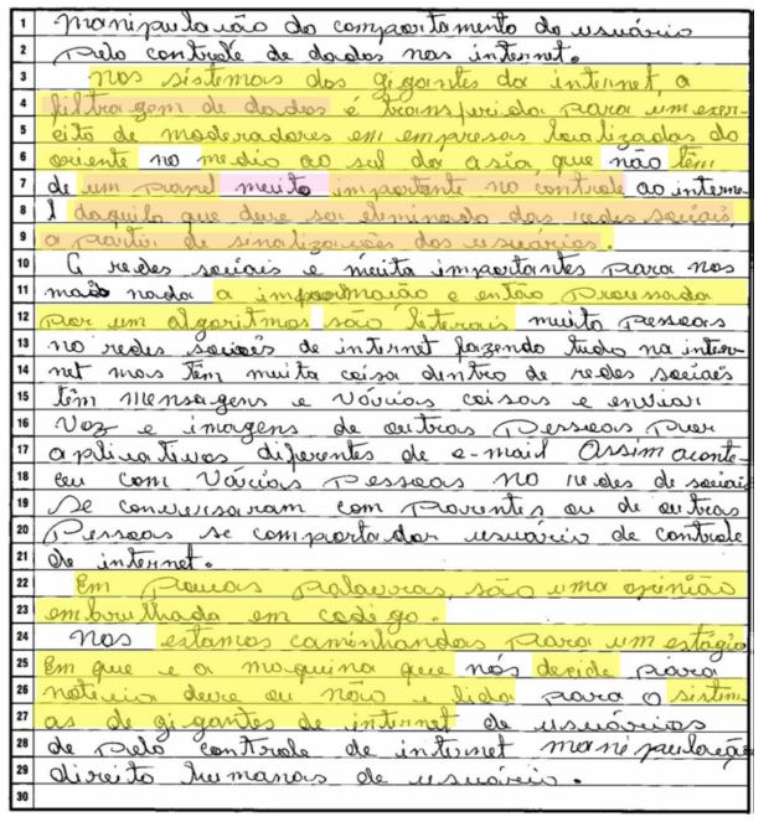 1 manipulação do comportamento do usuário
2 Pelo controle de dados nas internet.
3 nos sistemas dos gigantes da internet, a
4 filtragem de dados é transferida para um exer-
5 cito de moderadores em empresas localizadas do
6 oriente no medio ao sul da asia, que não têm
7 de um papel muito importante no controle ao interne-
8 t daquilo que deve ser eleminado das redes sociais,
9 a partir de sinalizações dos usuários.
10 G redes sociais e muita importantes para nos
11 mais nada a imformaião e então Processada
12 Por um algoritmos são leterais muito Pessoas
13 no redes sociais de internet fazendo tudo na inter-
14 net mas têm muita coisa dentro de redes sociais
15 têm mensagens e vários coisas e enviar
16 voz e imagens de outras Pessoas Por
17 aplicativos diferentes de e-mail Assim aconte-
18 ceu com várias Pessoas no redes de sociais
19 se conversaram com Parentes ou de outras
20 Pessoas se comportador usuário de controle
21 de internet.
22 Em Poucas Palavras, são uma opinião
23 embrulhada em codigo.
24 nos estamos caminhandos Para um estágio
25 Em que e a maquina que nós decide para
26 noticia deve ou não e lida para o sistem-
27 as de gigantes de internet de usuários
28 de pelo controle de internet manipulação
29 direito humanas de usuário.
30